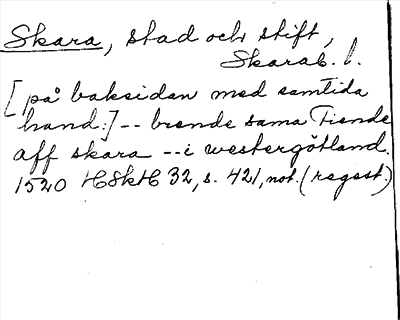 Skara, stad och stift,
Skarab. l.
[på baksidan med samtida
hand:] -- brende sama Tiende
aff skara -- i westergötland.
1520 HSkH 32, s. 421, not. (regest.)